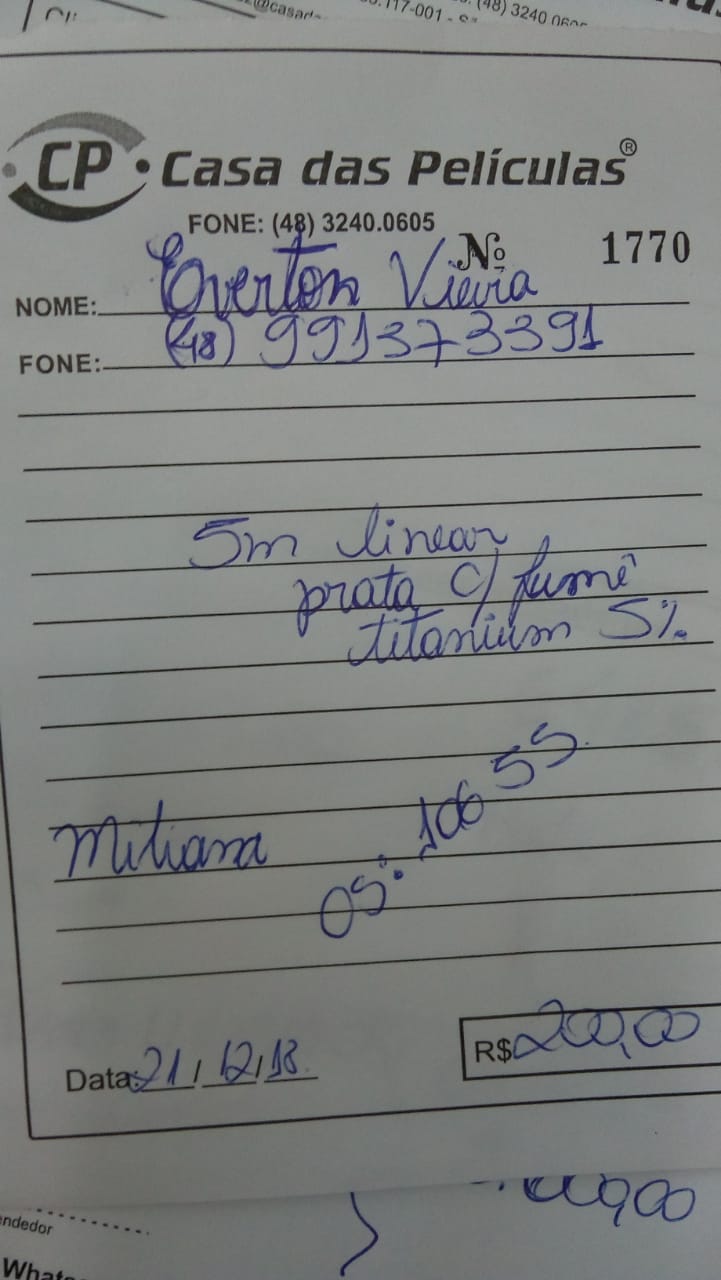 (48) 3240 0605
CP
Casa das Películas®
FONE: (48) 3240.0605
Nº 1770
NOME: Everton Vieira
FONE: (48) 991373391
5m linear
prata c/ fumê
titanium 5%
OS: 10655
Data: 21/12/18
R$ 200,00
endedor
Whats